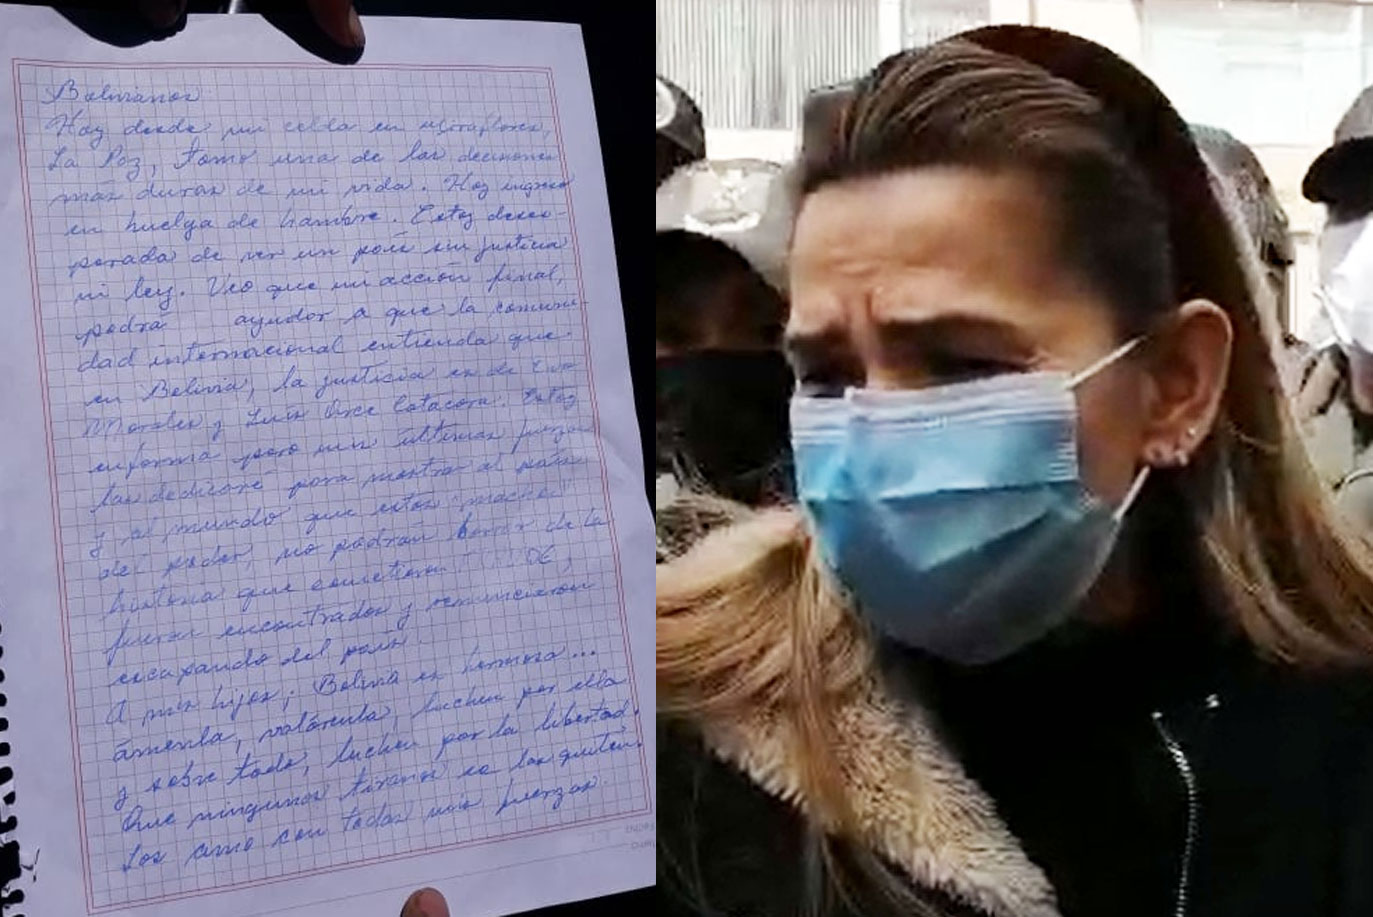 Bolivianos
Hoy desde mi celda en Miraflores,
La Paz, tomo una de las decisiones
mas duras de mi vida. Hoy ingreso
en huelga de hambre. Estoy deses-
perada de ver un país sin justicia
ni ley. Veo que mi acción final,
podrá ayudar a que la comuni-
dad internacional entienda que
en Bolivia, la justicia es de Evo
Morales y Luis Arce Catacora. Estoy
enferma pero mis últimas fuerzas
las dedicaré para mostrar al país
y al mundo que estos "machos"
del poder, no podrán borrar de la
historia que cometieron
fueron encontrados y renunciaron
escapando del país.
A mis hijos; Bolivia es hermosa...
ámenla, valórenla, luchen por ella
y sobre todo, luchen por la libertad.
Que ningunos tiranos se las quiten.
Los amo con todas mis fuerzas.